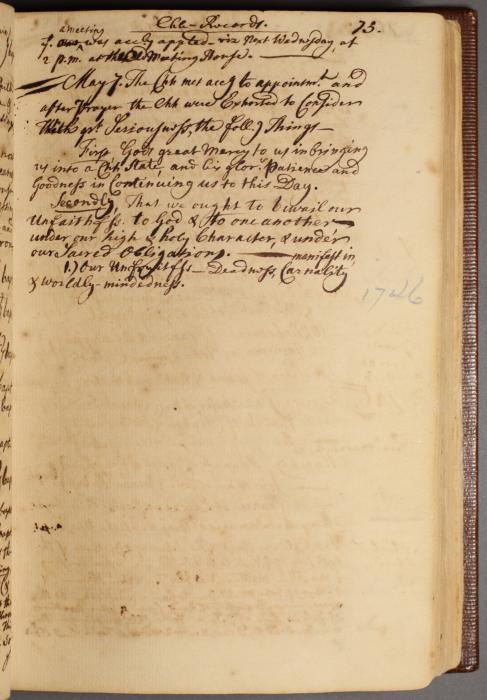 Chh-Records. 75.
a meeting
was accly appted. viz Next Wednesday, at
2 p.m. at the Old Meeting House. —
— May 7. The Chh met accg to appointmt. and
after Prayer the Chh were Exhorted to Consider
With gt. Seriousness, the follg Things —
First Gods great Mercy to us in bringing
us into a Chh State, and his glors. Patience and
Goodness in Continuing us to this Day.
Secondly, That we ought to bewail our
Unfaithfss. to God & to one another —
under our high & holy Character, & under
our Sacred Obligations. — manifest in
1.) Our Unfruitfss — Deadness, Carnality
& worldly-mindedness.
1746